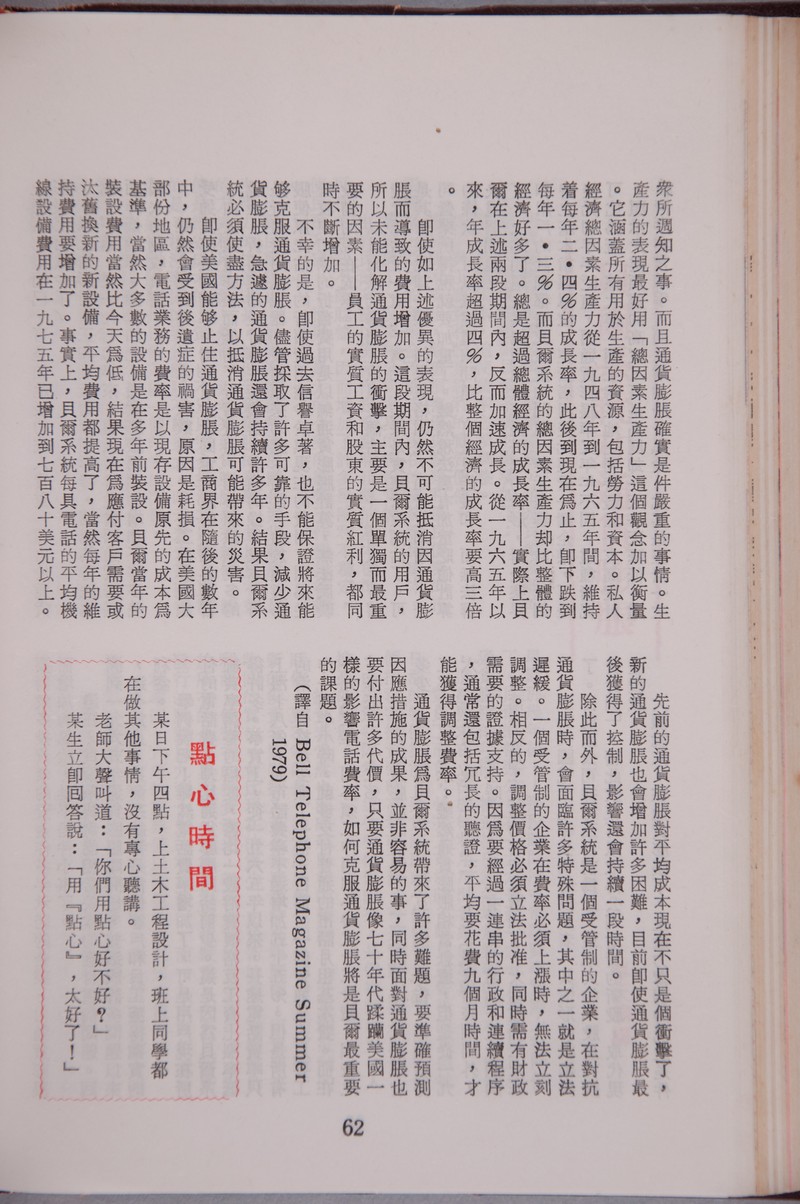 衆所週知之事。而且通貨膨脹確實是件嚴重的事情。生
產力的表現最好用「總因素生產力」這個觀念加以衡量
。它涵蓋所有用於生產的資源，包括勞力和資本。私人
經濟總因素生產力從一九四八年到一九六五年間，維持
着每年二•四％的成長率，此後到現在爲止，卽下跌到
每年一•三％。而貝爾系統的總因素生產力却比整體的
經濟好多了。總是超過總體經濟的成長率——實際上貝
爾在上述兩段期間內，反而加速成長。從一九六五年以
來，年成長率超過四％，比整個經濟的成長率要高三倍
。
卽使如上述優異的表現，仍然不可能抵消因通貨膨
脹而導致的費用增加。這段期間內，貝爾系統的用戶，
所以未能化解通貨膨脹的衝擊，主要是一個單獨而最重
要的因素——員工的實質工資和股東的實質紅利，都同
時不斷增加。
不幸的是，卽使過去信譽卓著，也不能保證將來能
够克服通貨膨脹。儘管採取了許多可靠的手段，減少通
貨膨脹，急遽的通貨膨脹還會持續許多年。結果貝爾系
統必須使盡方法，以抵消通貨膨脹可能帶來的災害。
卽使美國能够止住通貨膨脹，工商界在隨後的數年
中，仍然會受到後遺症的禍害，原因是耗損。在美國大
部份地區，電話業務的費率是以現存設備原先的成本爲
基準，當然大多數的設備是在多年前裝設。貝爾當年的
裝設費用當然比今天爲低，結果現在爲應付客戶需要或
汰舊換新的新設備，平均費用都提高了，當然每年的維
持費用要增加了。事實上，貝爾系統每具電話的平均機
線設備費用在一九七五年已增加到七百八十美元以上。
先前的通貨膨脹對平均成本現在不只是個衝擊了，
新的通貨膨脹也會增加許多困難，目前卽使通貨膨脹最
後獲得了控制，影響還會持續一段時間。
除此而外，貝爾系統是一個受管制的企業，在對抗
通貨膨脹時，會面臨許多特殊問題，其中之一就是立法
遲緩。一個受管制的企業在費率必須上漲時，無法立刻
調整。相反的，調整價格必須立法批准，同時需有財政
需要的證據支持。因爲要經過一連串的行政和連續程序
，通常還包括冗長的聽證，平均要花費九個月時間，才
能獲得調整費率。
通貨膨脹爲貝爾系統帶來了許多難題，要準確預測
因應措施的成果，並非容易的事，同時面對通貨膨脹也
要付出許多代價，只要通貨膨脹像七十年代蹂躪美國一
樣的影響電話費率，如何克服通貨膨脹將是貝爾最重要
的課題。
（譯自 Bell Telephone Magazine Summer
1979）
點心時間
某日下午四點，上土木工程設計，班上同學都
在做其他事情，沒有專心聽講。
老師大聲叫道：「你們用點心好不好？」
某生立卽回答說：「用『點心』，太好了！」
62